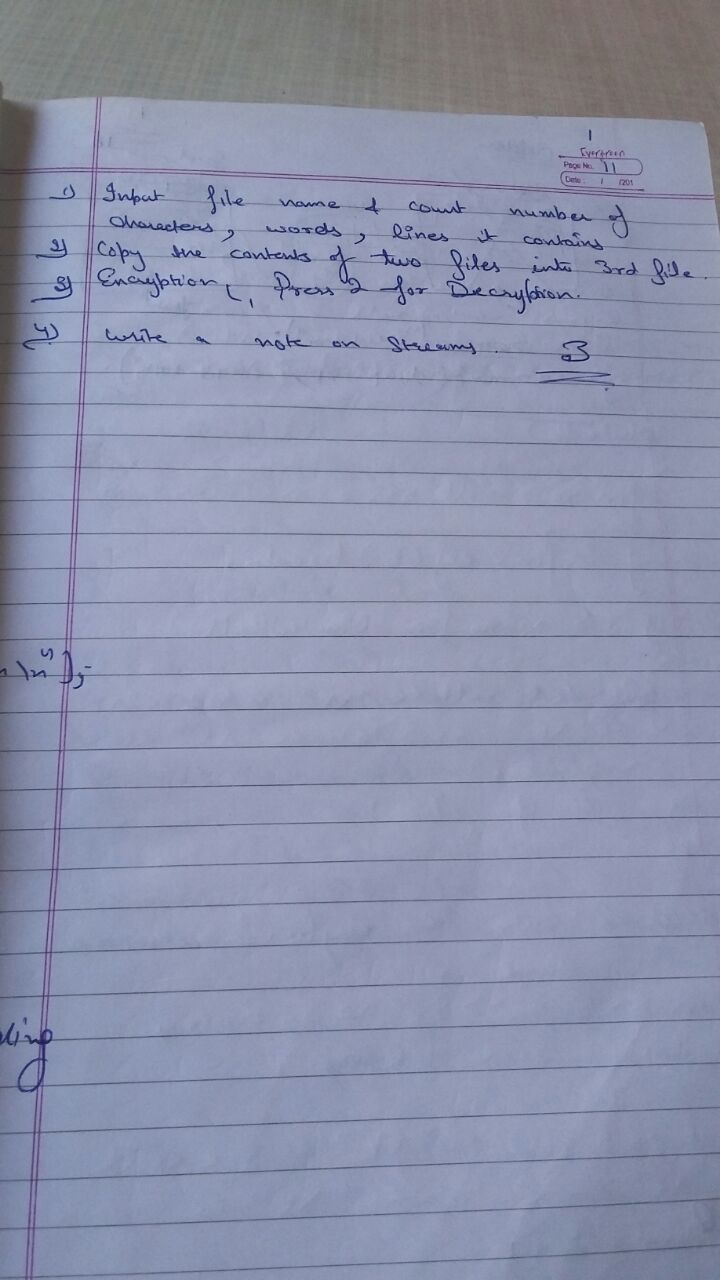 1
Evergreen
Page No. 11
Date : / /201
1) Input file name & count number of
characters, words, lines it contains
2) Copy the contents of two files into 3rd file.
3) Encryption 1, Press 2 for Decryption.
4) Write a note on Streams.
\n");
ling